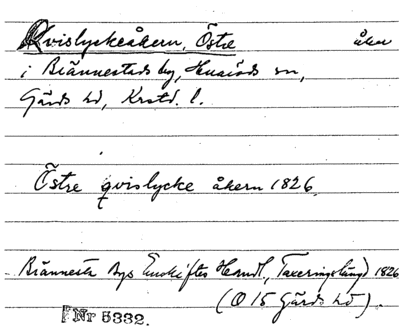 Qvislyckeåkern, Östre åker
i Brännestads by, Huaröds sn,
Gärds hd, Krstd. l.
Östre qvislycke åkern 1826.
Brännesta Bys Enskiftes Handl., Taxeringslängd 1826
(O 15 Gärds hd).
Nr 5332.